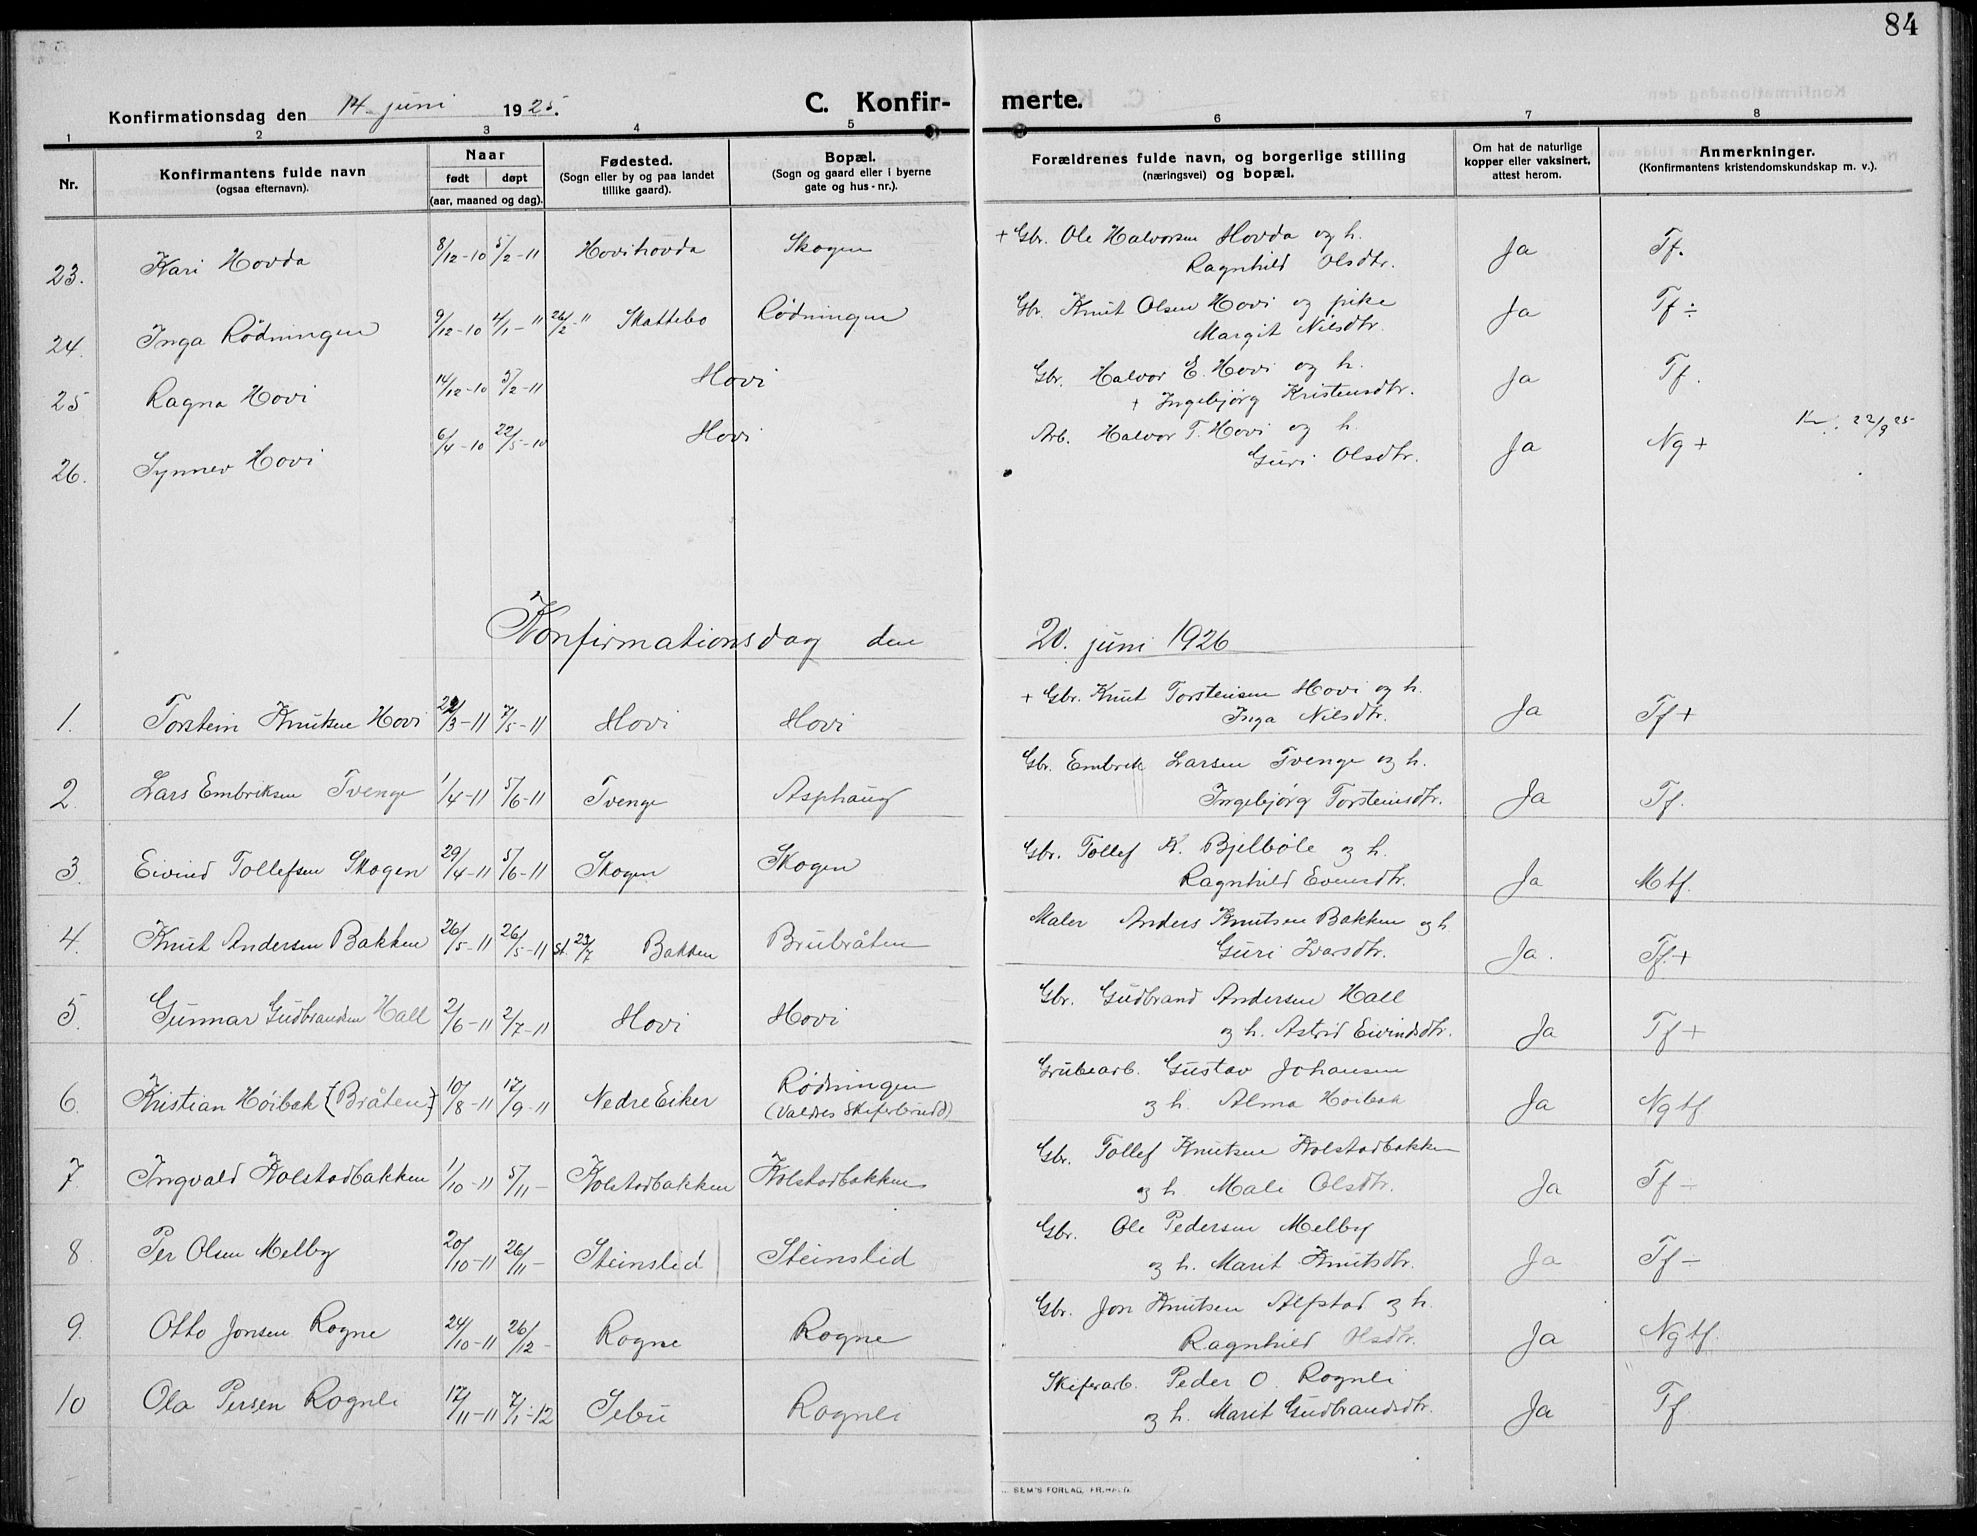 84
Konfirmationsdag den 14. juni 1925. C. Konfir- merte.
1 2 3 4 5 6 7 8
Nr.
Konfirmantens fulde navn
(ogsaa efternavn).
Naar
født døpt
(aar, maaned og dag).
Fødested.
(Sogn eller by og paa landet
tillike gaard).
Bopæl.
(Sogn og gaard eller i byerne
gate og hus-nr.).
Forældrenes fulde navn, og borgerlige stilling
(næringsvei) og bopæl.
Om hat de naturlige
kopper eller vaksinert,
attest herom.
Anmerkninger.
(Konfirmantens kristendomskundskap m. v.).
23. Kari Hovda 8/12-10 5/2-11 Hovihovda Skogen + Gbr. Ole Halvorsen Hovda og h. Ja Tf.
Ragnhild Olsdtr.
24. Inga Rødningen 9/12-10 4/1-" 26/2-" Skattebo Rødningen Gbr. Knut Olsen Hovi og pike Ja Tf ÷
Margit Nilsdtr.
25 Ragna Hovi 14/12-10 5/2-11 Hovi Gbr. Halvor E. Hovi og h. Ja Tf.
+ Ingebjørg Kristensdtr.
26. Synnev Hovi 6/4-10 22/5-10 Hovi Arb. Halvor T. Hovi og h. Ja Ng + 22/9 25
Guri Olsdtr.
Konfirmationsdag den 20. juni 1926
1. Torstein Knutsen Hovi 22/3-11 7/5-11 Hovi Hovi + Gbr. Knut Torsteinsen Hovi og h. Ja Tf +
Inga Nilsdtr.
2. Lars Embriksen Tvenge 1/4-11 5/6-11 Tvenge Asphaug Gbr. Embrik Larsen Tvenge og h. Ja Tf.
Ingebjørg Torsteinsdtr.
3. Eivind Tollefsen Skogen 29/4-11 5/6-11 Skogen Skogen Gbr. Tollef K. Bjelbøle og h. Ja Mtf.
Ragnhild Evensdtr.
4. Knut Andersen Bakken 26/5-11 26/5-11 st. 23/7 Bakken Brubråten Maler Anders Knutsen Bakken og h. Ja. Tf. +
Guri Ivarsdtr.
5. Gunnar Gudbrandsen Hall 2/6-11 2/7-11 Hovi Hovi Gbr. Gudbrand Andersen Hall Ja Tf +
og h. Astrid Eivindsdtr.
6. Kristian Høibak {Bråten} 10/8-11 17/9-11 Nedre Eiker Rødningen Grubearb. Gustav Johansen Ja Ngtf
(Valdres Skiferbrudd) og h. Alma Hoibak
7. Ingvald Kolstadbakken 1/10-11 5/11- Kolstadbakken Kolstadbakken Gbr. Tollef Knutsen Kolstadbakken Ja Tf -
og h. Mali Olsdtr.
8. Per Olsen Melby 20/10-11 26/11- Steinslid Steinslid Gbr. Ole Pedersen Melby Ja Tf -
og h. Marit Knutsdtr.
9. Otto Jonsen Rogne 24/10-11 26/12- Rogne Rogne Gbr. Jon Knutsen Alfstad og h. Ja Ngtf.
Ragnhild Olsdtr.
10 Ola Persen Rognli 17/11-11 7/1-12 Sebu Rognli Skiferarb. Peder O. Rognli Ja Tf
og h. Marit Gudbrandsdtr.
SEM'S FORLAG, FR.HALD.